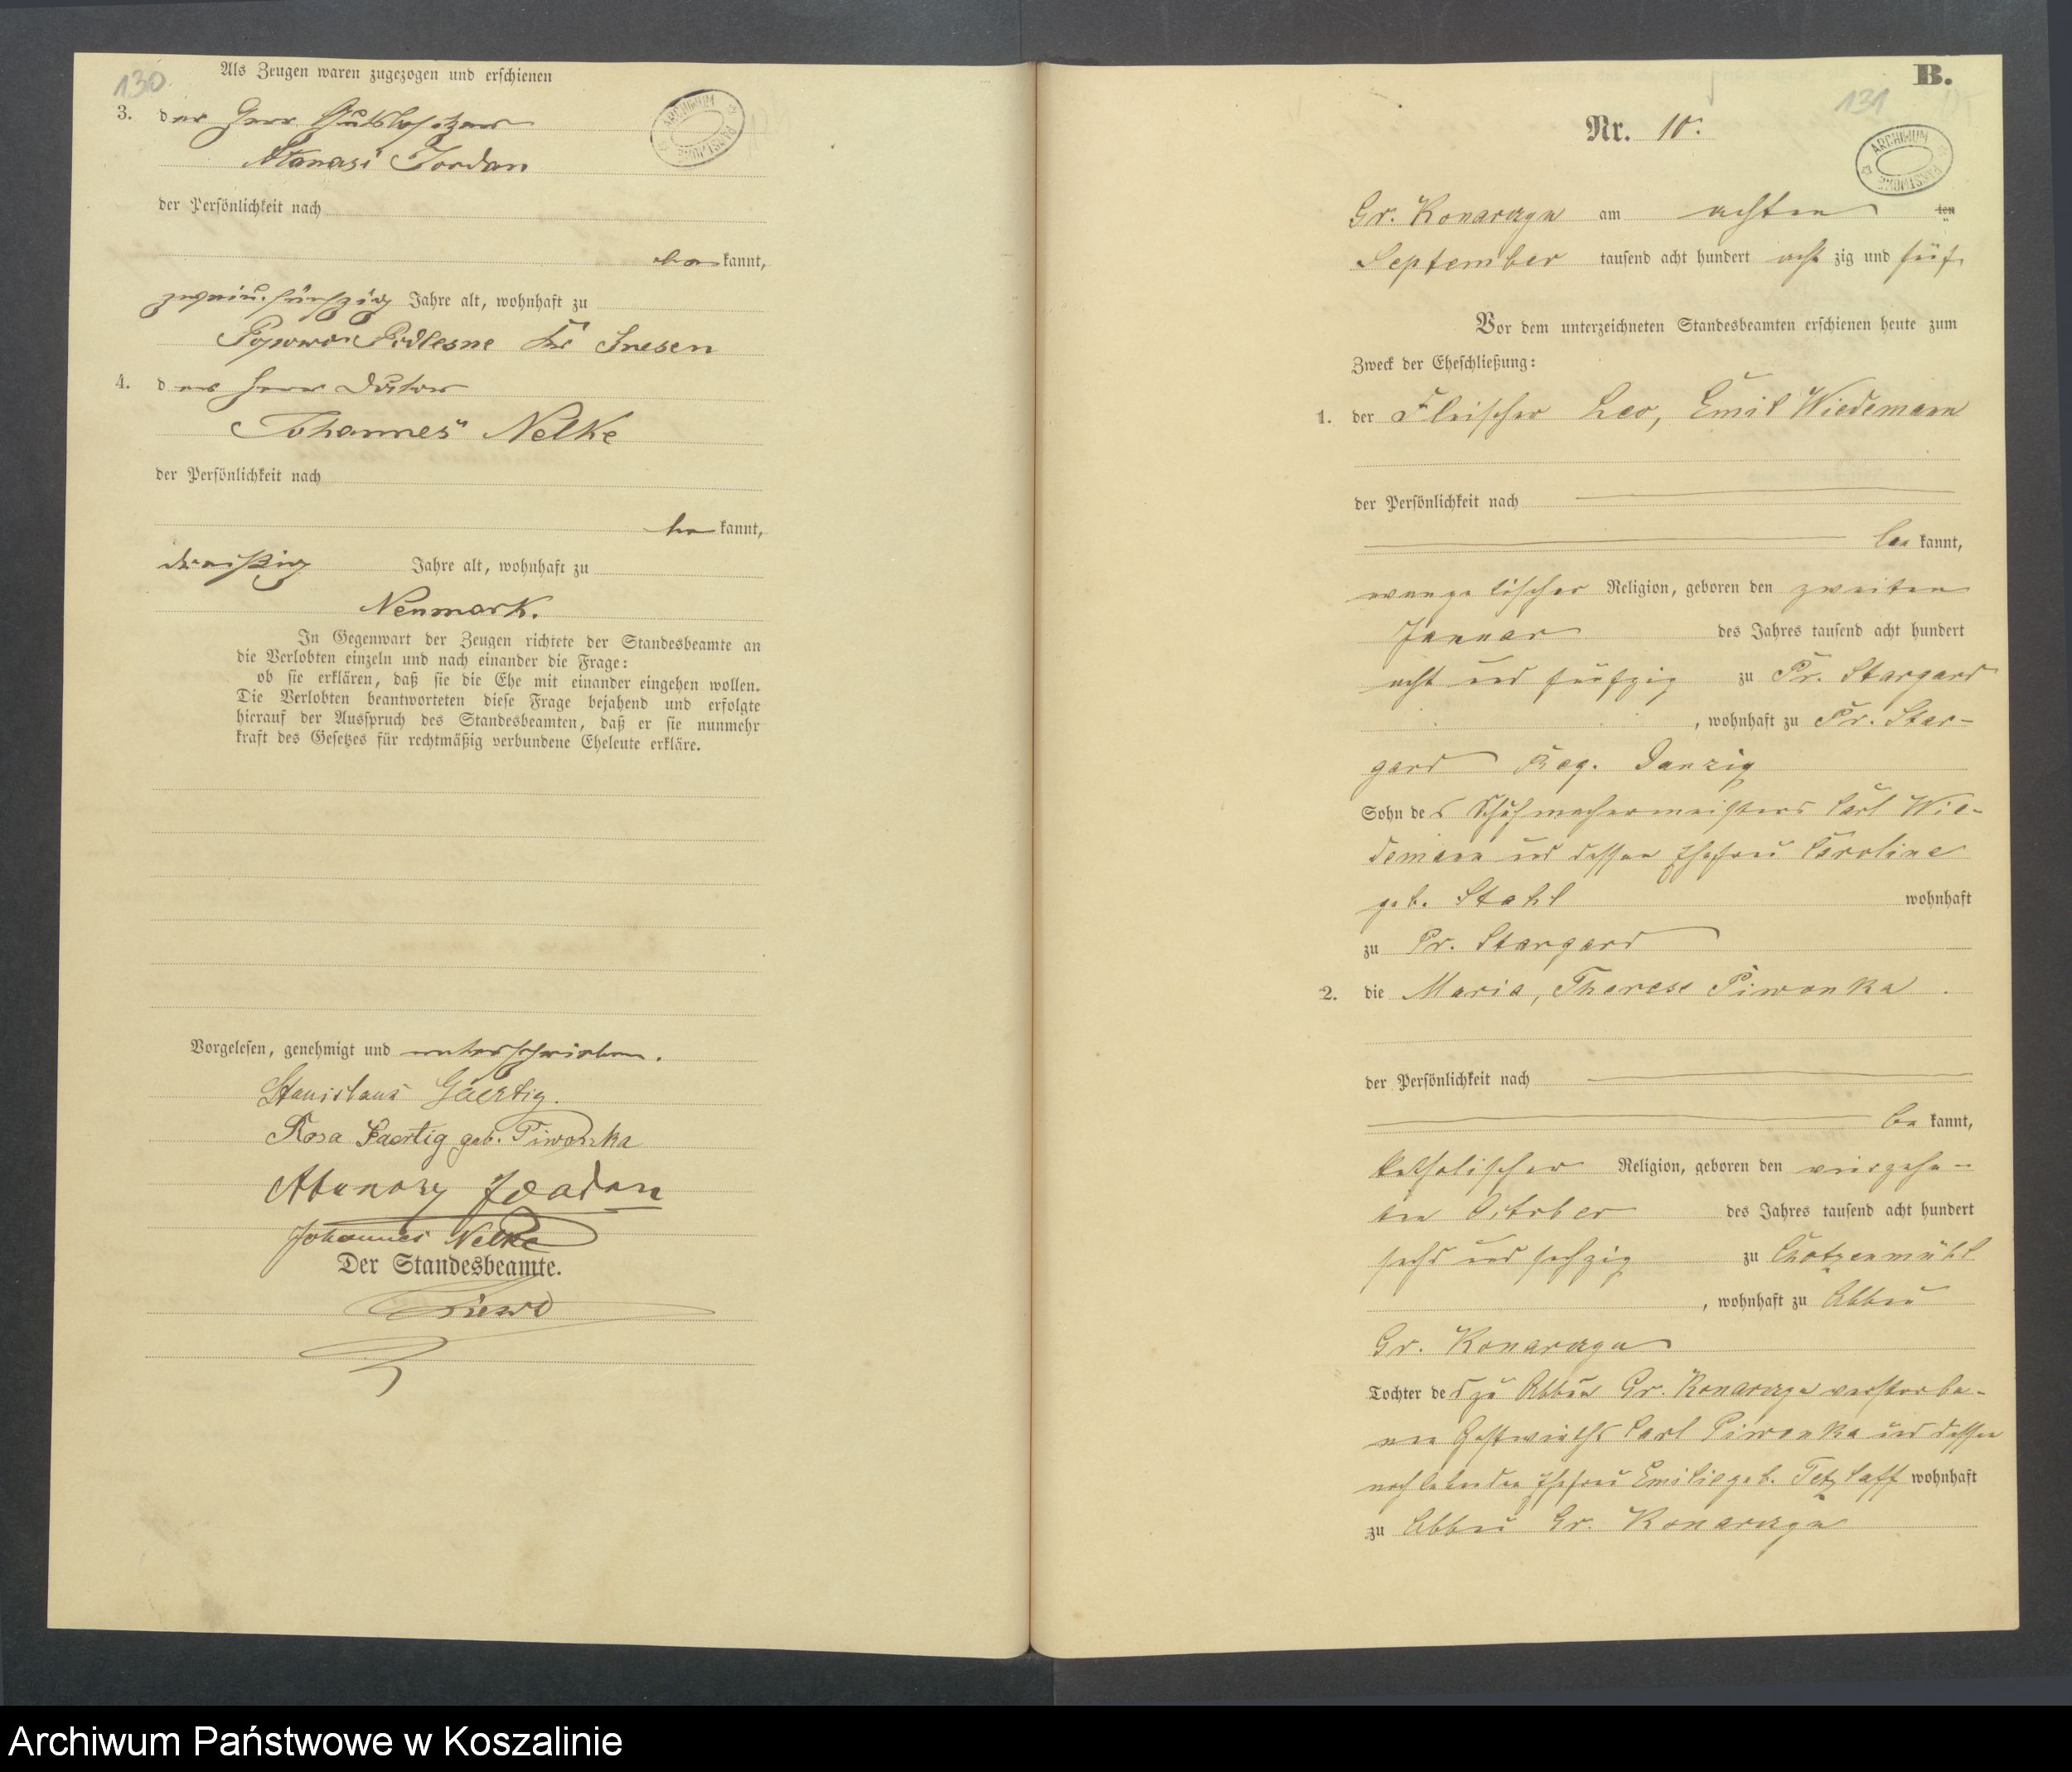 130.
Als Zeugen waren zugezogen und erschienen
3. der Herr Gutsbesitzer
Atanasi Jordan
der Persönlichkeit nach
bekannt,
zweiu.fünfzig Jahre alt, wohnhaft zu
Popowo Podlesne Kr Gnesen
4. der Herr
Johannes Nelke
der Persönlichkeit nach
bekannt,
dreißig Jahre alt, wohnhaft zu
Neumark.
In Gegenwart der Zeugen richtete der Standesbeamte an
die Verlobten einzeln und nach einander die Frage:
ob sie erklären, daß sie die Ehe mit einander eingehen wollen.
Die Verlobten beantworteten diese Frage bejahend und erfolgte
hierauf der Ausspruch des Standesbeamten, daß er sie nunmehr
kraft des Gesetzes für rechtmäßig verbundene Eheleute erkläre.
Vorgelesen, genehmigt und unterschrieben.
Stanislaus Gaertig.
Rosa Gaertig geb. Piwonka
Atanazy Jordan
Johannes Nelke
Der Standesbeamte.
ARCHIWUM PAŃSTWOWE
B.
131
Nr. 10.
ARCHIWUM PAŃSTWOWE
Gr. Konarczyn am achten ten
September tausend acht hundert achtzig und fünf
Vor dem unterzeichneten Standesbeamten erschienen heute zum
Zweck der Eheschließung:
1. der Fleischer Leo, Emil Wiedemann
der Persönlichkeit nach
bekannt,
evangelischer Religion, geboren den zweiten
Januar des Jahres tausend acht hundert
acht und fünfzig zu Pr. Stargard
, wohnhaft zu Pr. Star-
gard Reg. Danzig
Sohn des Schuhmachermeisters Carl Wie-
demann und dessen Ehefrau Caroline
geb. Stahl wohnhaft
zu Pr. Stargard
2. die Maria, Therese Piwonka
der Persönlichkeit nach
bekannt,
katholischer Religion, geboren den vierzehn-
ten October des Jahres tausend acht hundert
sechs und sechzig zu Chotzenmühl
, wohnhaft zu Abbau
Gr. Konarczyn
Tochter des zu Abbau Gr. Konarczyn verstorbe-
nen Gastwirths Carl Piwonka und dessen
noch lebenden Ehefrau Emilie geb. Tetzlaff wohnhaft
zu Abbau Gr. Konarczyn
Archiwum Państwowe w Koszalinie